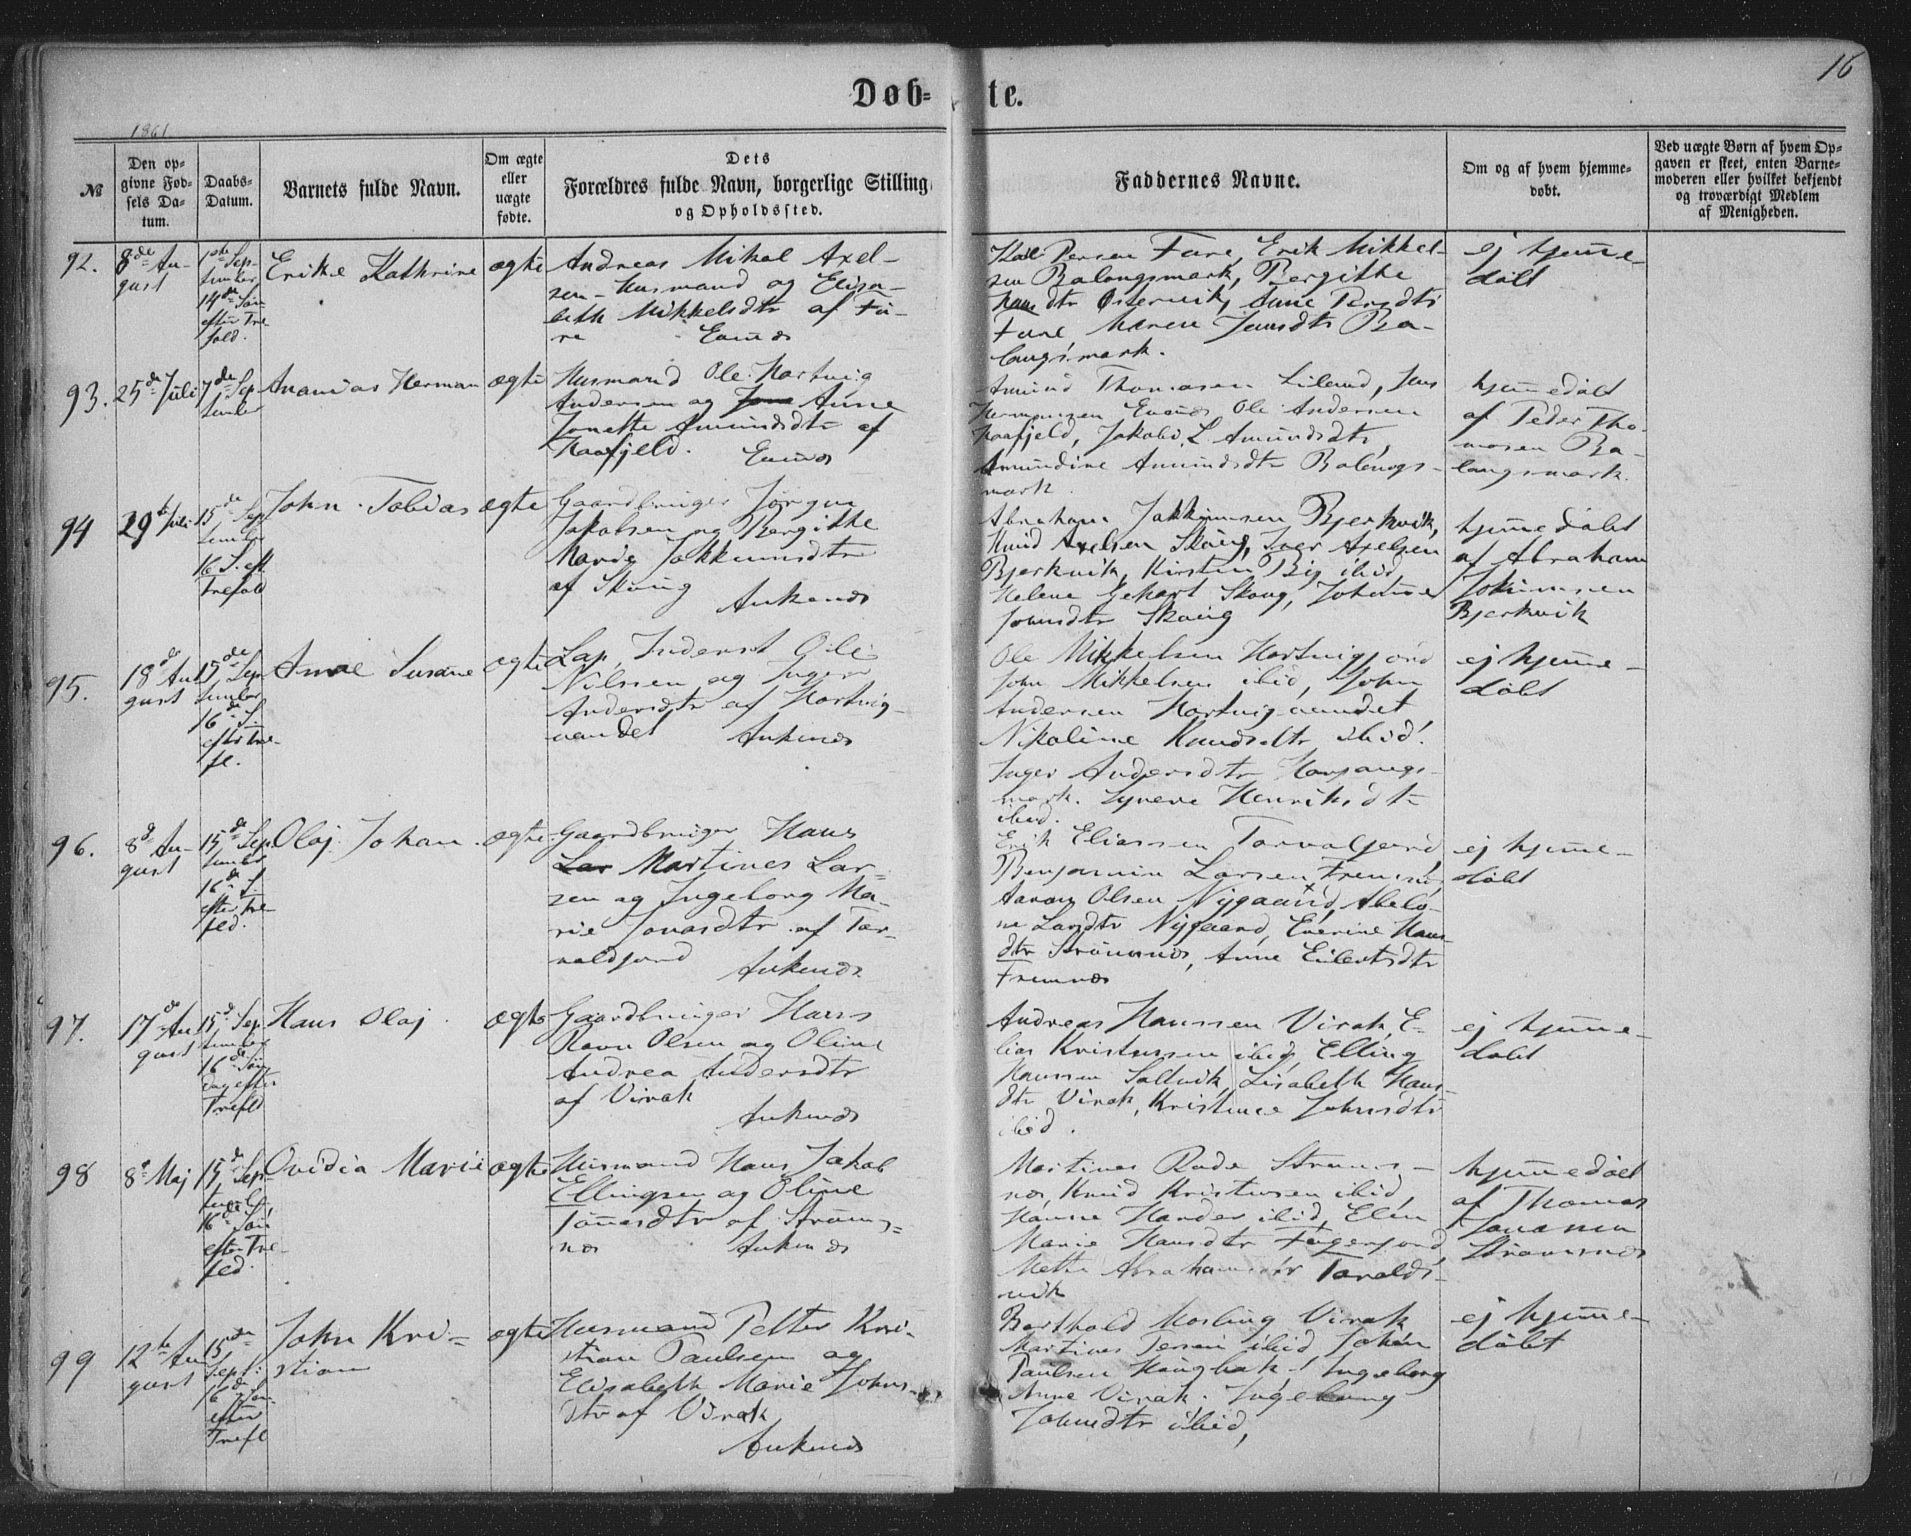 16
Døb-te.
1861
№
Den op-
givne Fød-
sels Da-
tum.
Daabs-
Datum.
Barnets fulde Navn.
Om ægte
eller
uægte
fødte.
Dets
Forældres fulde Navn, borgerlige Stilling
og Opholdssted.
Faddernes Navne.
Om og af hvem hjemme-
døbt.
Ved uægte Børn af hvem Op-
gaven er skeet, enten Barne-
moderen eller hvilket bekjendt
og troværdigt Medlem
af Menigheden.
92.
8de Au-
gust
1ste Sep-
tember
14de Søn
efter Tre-
fold.
Erike Kathrine
ægte
Andreas Mikal Axel-
sen - Husmand og Elisa-
beth Mikkelsdtr af Fu-
re Evenæs
Persen Fure, Erik Mikkel-
sen Balangsmark, Bergithe
dtr Osterwik, Anne
Fure Maren Jensdtr Ba-
langsmark.
ej hjemme-
døbt
93.
25de Juli
7de Sep
tember
Ananias Herman
ægte
Husmand Ole Hartvig
Andersen og Anne
Jonette Amundsdtr af
Haafjeld. Evenæs
Amund Thomasen Liland, Jens
Hermansen Evenæs Ole Andersen
Haafjeld, Jakobi. L. Amundsdtr,
Amundine Amundsdtr Balangs-
mark.
hjemmedøbt
af Peder Tho-
masen Ba-
langsmark.
94
29de Juli
15de Sep
tember
16 S. eft
Trefold
John Tobias
ægte
Gaardbruger Jørgen
Jakobsen og Bergitte
Marie Jokkumsdtr
af Skoug Ankenæs
Abraham Jakkimsen Bjerkvik,
Knud Axelsen Skoug, Iver Axelsen
Bjerkvik, Kirsten ibid
Helene Gehart Skoug, Johanne
Johnsdtr Skoug
hjemmedøbt
af Abraham
Jokimsen
Bjerkvik
95.
18de Au
gust
15de Sep
tember
16de S.
efter Tre-
fl.
Anne Susane
ægte
Lap, Inderst Ole
Nilssen og Inger
Andersdtr af Hartvig-
vandet Ankenæs
Ole Mikkelsen Hartvigjord
John Mikkelsen ibid, John
Andersen Hartvigvandet
Nikoline Knudsdtr ibid.
Inger Andersdtr Herjangs-
mark. Synneve Henriksdtr
ibid.
ej hjemme-
døbt
96.
8d Au-
gust
15de Sep
tember
16de S.
efter Tre-
fld.
Olaj Johan
ægte
Gaardbruger Hans
Lar Martines Lar-
sen og Ingeborg Ma-
rie Jonasdtr af Tar-
valdjord Ankenæs
Erik Eliassen Tarvaljord,
Benjamin Larsen Fremnæs,
Aaron Olsen Nygaard, Abelo-
ne Larsdtr Nygaard, Everine Hans-
dtr Strømsnæs, Anne Eilertsdtr
Fremnæs
ej hjemme-
døbt
97.
17de Au
gust
15d Sep
tember
16de Søn
dag efter
Trefld
Hans Olaj
ægte
Gaardbruger Hans
Ravn Olsen og Oline
Andrea Andersdtr
af Virak
Ankenæs
Andreas Hanssen Virak, E-
lias Kristensen ibid, Elling
Hanssen Saltvik, Lisabeth Hans-
dtr Virak, Kristence Johnsdtr
ibid.
ej hjemme-
døbt
98
8de Maj
15de Sep-
tember
16de Søn
efter Tre-
fld.
Ovidia Marie
ægte
Husmand Hans Jakob
Ellingsen og Oline
Tønnesdtr af Strøms-
næs Ankenæs
Martines Rode Strøms-
næs, Knud Kristensen ibid,
Hanne Harder ibid, Elen
Marie Hansdtr Fagerjord,
Mette Abrahamsdtr Taralds-
vik
hjemmedøbt
af Thomas
Jonasen
Strømsnæs
99
12te Au
gust
15de
Sept:
16de Søn-
efter
Trefl
John Kri-
stian
ægte
Husmand Petter Kri-
stian Paulsen og
Elisabeth Marie Johns-
dtr af Virak
Ankenæs
Barthold Mosling Virak
Martines Jensen ibid Johan
Paulsen Haugbak, Ingeborg
Anne Virak. Ingeborg
Johnsdtr ibid,
ej hjemme-
døbt